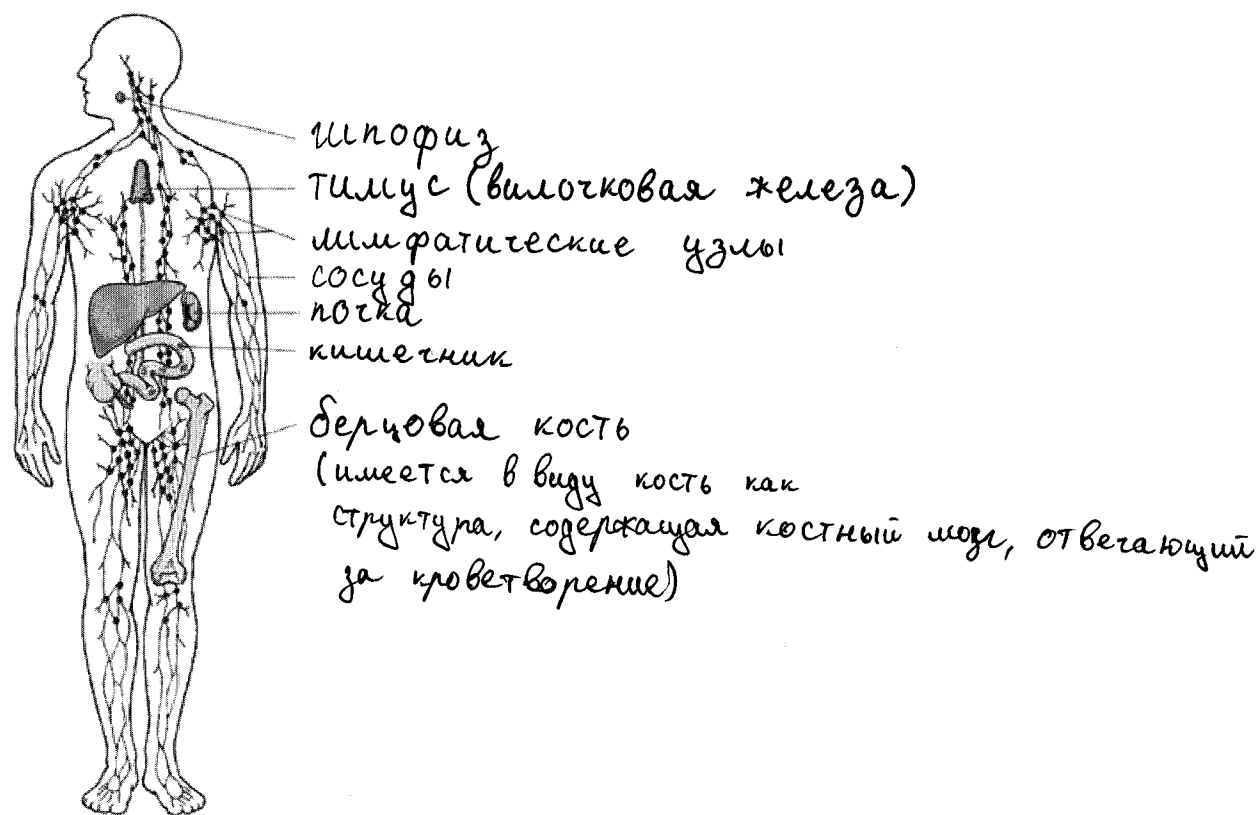 гипофиз
тимус (вилочковая железа)
лимфатические узлы
сосуды
почка
кишечник
берцовая кость
(имеется в виду кость как
структура, содержащая костный мозг, отвечающий
за кроветворение)